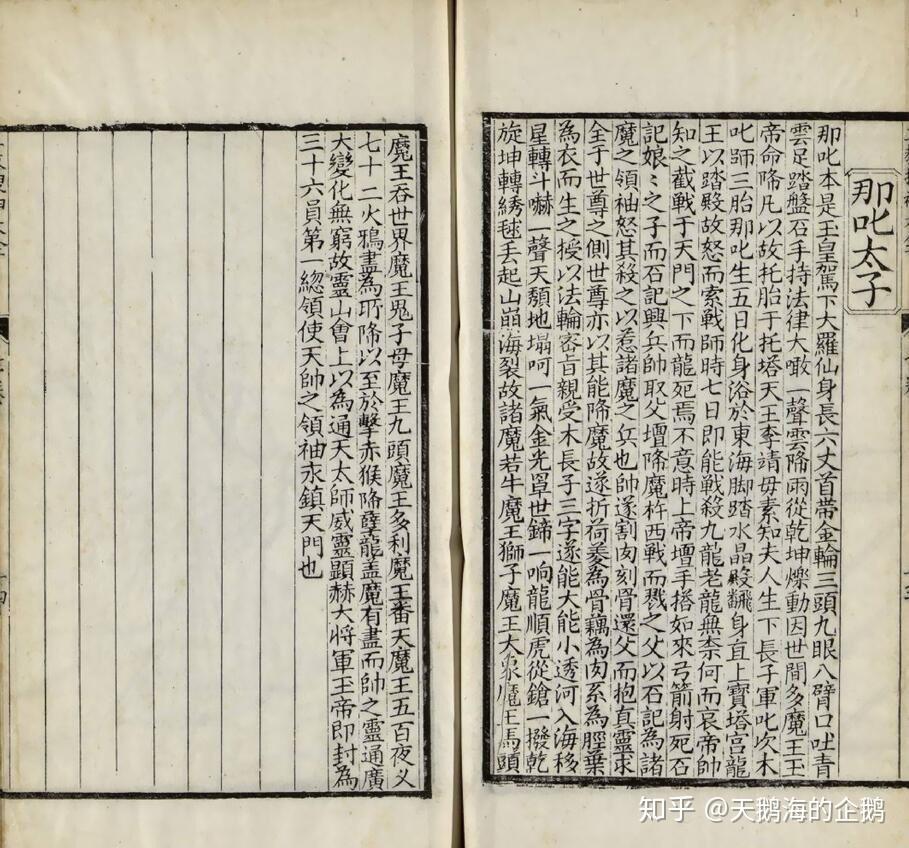 那叱太子
那叱本是玉皇駕下大羅仙身長六丈首帶金輪三頭九眼八臂口吐青
雲足踏盤石手持法律大噉一聲雲降雨從乾坤爍動因世間多魔王玉
帝命降凡以故托胎于托塔天王李靖毋素知夫人生下長子軍叱次木
叱師三胎那叱生五日化身浴於東海脚踏水晶殿飜身直上寶塔宮龍
王以踏殿故怒而索戰師時七日即能戰殺九龍老龍無柰何而哀帝帥
知之截戰于天門之下而龍死焉不意時上帝壇手搭如來弓箭射死石
記娘〻之子而石記興兵帥取父壇降魔杵西戰而戮之父以石記為諸
魔之領袖怒其殺之以惹諸魔之兵也帥遂割肉刻骨還父而抱真靈求
全于世尊之側世尊亦以其能降魔故遂折荷菱為骨藕為肉系為脛葉
為衣而生之授以法輪密旨親受木長子三字遂能大能小透河入海移
星轉斗嚇一聲天頹地塌呵一氣金光罩世鍗一响龍順虎從鎗一撥乾
旋坤轉綉毬丟起山崩海裂故諸魔若牛魔王獅子魔王大象魔王馬頭
魔王吞世界魔王鬼子母魔王九頭魔王多利魔王番天魔王五百夜叉
七十二火鴉盡為所降以至於擊赤猴降孽龍盖魔有盡而帥之靈通廣
大變化無窮故靈山會上以為通天太師威靈顯赫大將軍玉帝即封為
三十六員第一緫領使天帥之領袖永鎮天門也
知乎 @天鹅海的企鹅